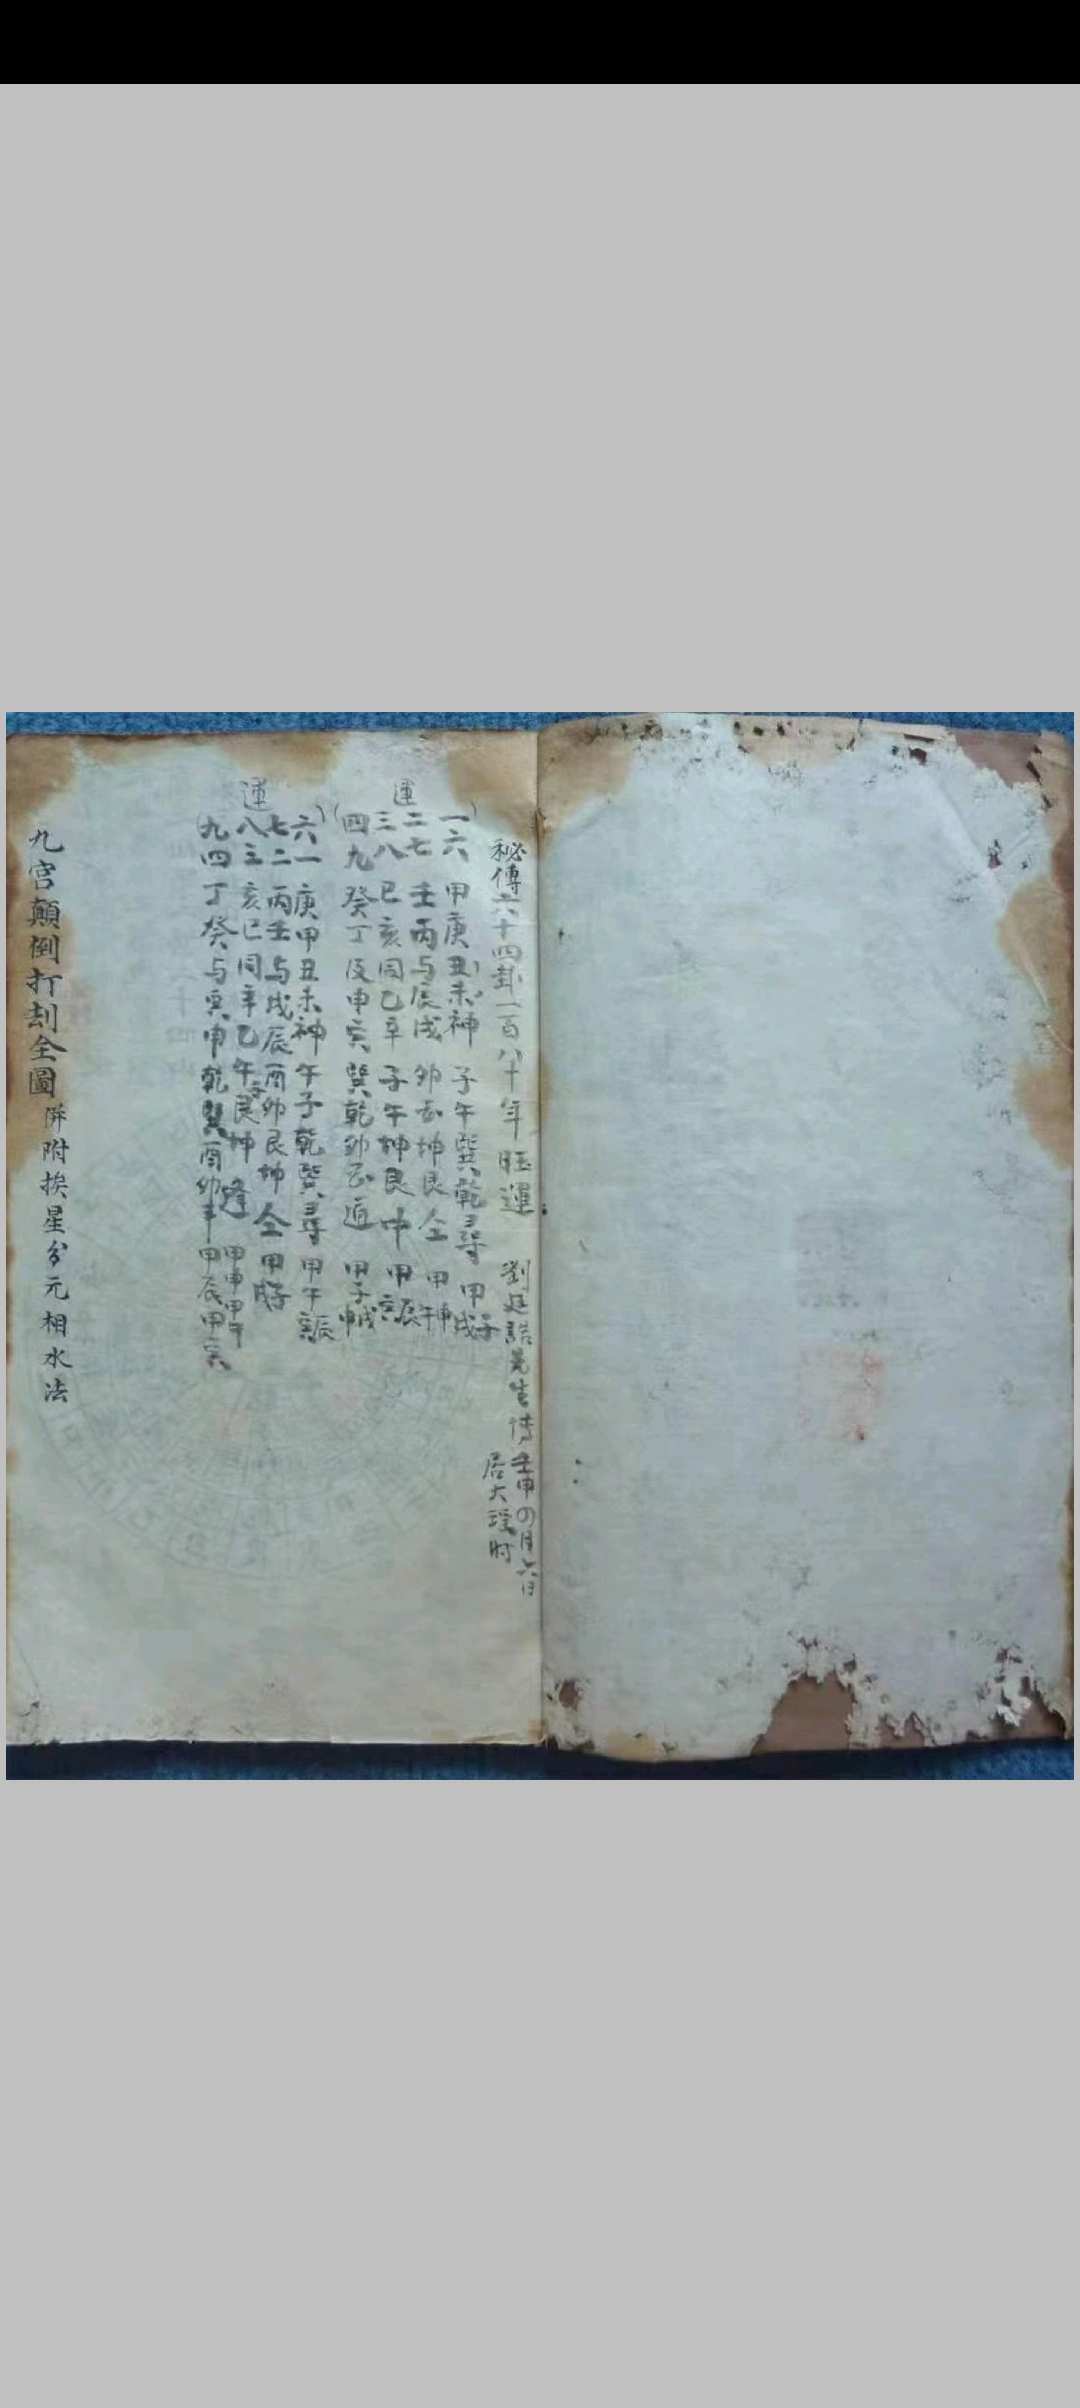 秘傳六十四卦一百八十年旺運 劉廷誥先生傳 壬申四月六日
居大瑶时
運
一六 甲庚丑未神 子午巽乾尋 甲子戌
二七 壬丙与辰戌 卯酉坤艮全 甲申午
三八 巳亥同乙辛 子午坤艮中 甲辰寅
四九 癸丁及申寅 巽乾卯酉逅 甲子申戌
運
六一 庚甲丑未神 午子乾巽尋 甲午寅辰
七二 丙壬与戌辰 酉卯艮坤全 甲子戌
八三 亥巳同辛乙 午子艮坤逢 甲申甲午
九四 丁癸与寅申 乾巽酉卯 甲辰甲寅
九宮顛倒打刦全圖 併附挨星分元相水法